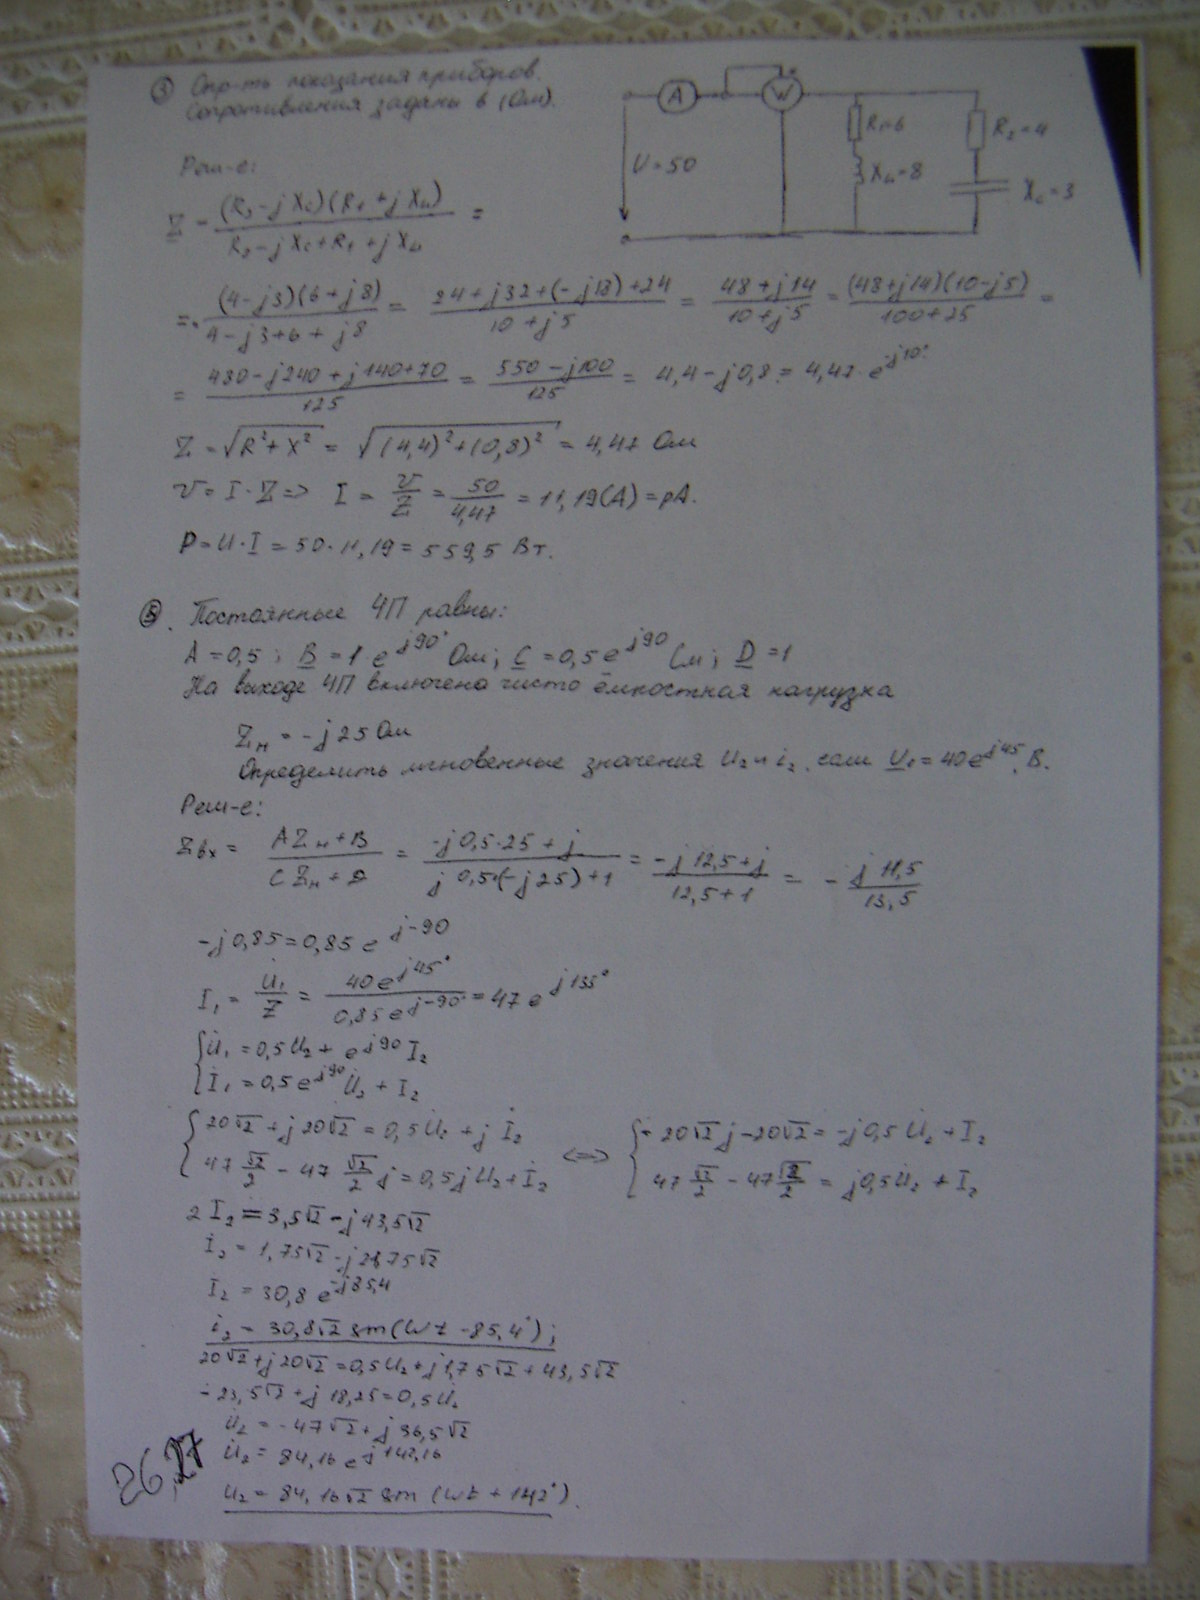 ③ Опр-ть показания приборов.
Сопротивления заданы в (Ом).
A
W
*
U=50
R₁=6
X_L=8
R₂=4
X_C=3
Реш-е:
Z = ((R₂-jX_C)(R₁+jX_L))/(R₂-jX_C+R₁+jX_L) =
= ((4-j3)(6+j8))/(4-j3+6+j8) = (24+j32+(-j18)+24)/(10+j5) = (48+j14)/(10+j5) = ((48+j14)(10-j5))/(100+25) =
= (480-j240+j140+70)/125 = (550-j100)/125 = 4,4-j0,8 = 4,47·e^(-j10°)
Z = √(R²+X²) = √((4,4)²+(0,8)²) = 4,47 Ом
U=I·Z => I = U/Z = 50/4,47 = 11,19(A) = pA.
P=U·I = 50·11,19 = 559,5 Вт.
⑤. Постоянные ЧП равны:
A=0,5; B=1·e^(j90°) Ом; C=0,5e^(j90) См; D=1
На выходе ЧП включена чисто ёмкостная нагрузка
Zн = -j25 Ом
Определить мгновенные значения U₂ и i₂, если U₁=40e^(j45), В.
Реш-е:
Zвх = (AZн+B)/(CZн+D) = (-j0,5·25+j)/(j0,5·(-j25)+1) = (-j12,5+j)/(12,5+1) = -(j11,5)/(13,5)
-j0,85=0,85e^(j-90)
I₁ = U₁/Z = (40e^(j45°))/(0,85e^(j-90°)) = 47e^(j135°)
{U₁=0,5U₂+e^(j90)I₂
{I₁=0,5e^(j90)U₂+I₂
{20√2+j20√2=0,5U₂+jI₂ <=> {-20√2j-20√2=-j0,5U₂+I₂
{47√2/2-47√2/2j=0,5jU₂+I₂ {47√2/2-47√2/2=j0,5U₂+I₂
2I₂=3,5√2-j43,5√2
I₂=1,75√2-j21,75√2
I₂=30,8e^(-j85,4)
i₂=30,8√2 sin(wt-85,4°);
20√2+j20√2=0,5U₂+j1,75√2+43,5√2
-23,5√2+j18,25=0,5U₂
U₂=-47√2+j36,5√2
U₂=84,16e^(j142,16)
U₂=84,16√2 sin(wt+142°).
26,27